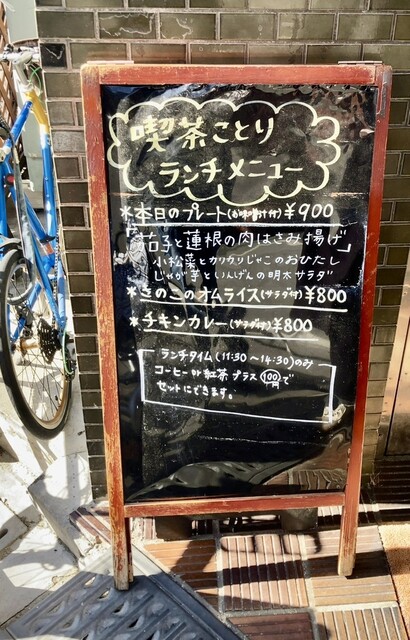 喫茶ことり
ランチメニュー
*本日のプレート(お味噌汁付)¥900
「茄子と蓮根の肉はさみ揚げ」
小松菜とカリカリじゃこのおひたし
じゃが芋といんげんの明太サラダ
*きのこのオムライス(サラダ付)¥800
*チキンカレー(サラダ付)¥800
ランチタイム(11:30〜14:30)のみ
コーヒーor紅茶プラス100円で
セットにできます。